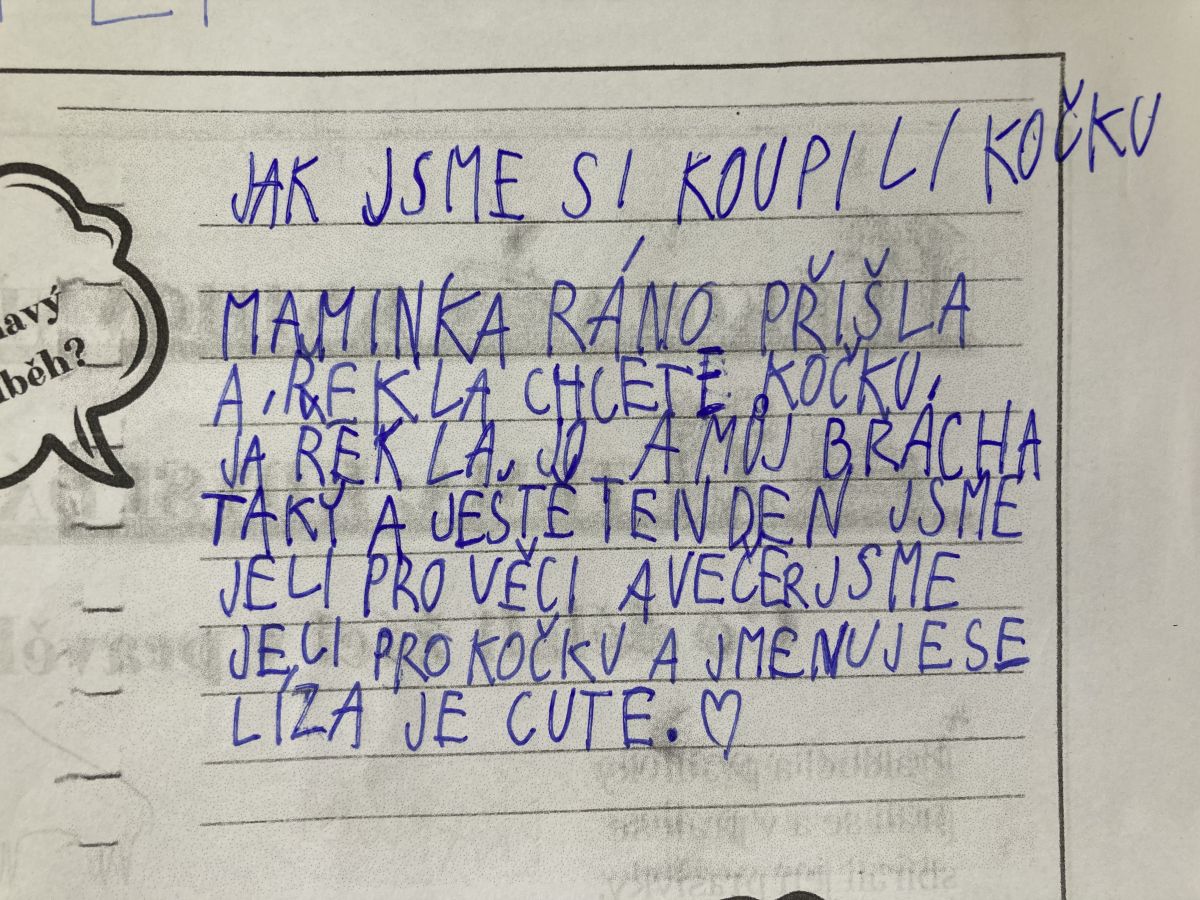 JAK JSME SI KOUPILI KOČKU
MAMINKA RÁNO PŘIŠLA
A, ŘEKLA CHCETE KOČKU,
JA ŘEKLA, JO A MŮJ BRÁCHA
TAKY A JEŠTĚ TEN DEN JSME
JELI PRO VĚCI A VEČER JSME
JELI PRO KOČKU A JMENUJE SE
LÍZA JE CUTE. ♡
avý
běh?